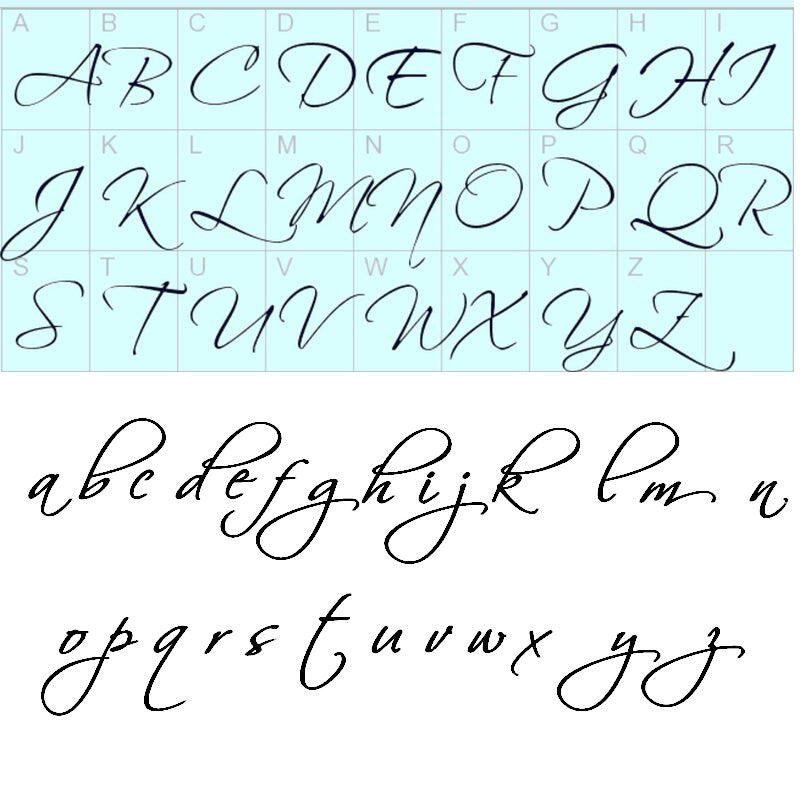 A B C D E F G H I
A B C D E F G H I
J K L M N O P Q R
J K L M N O P Q R
S T U V W X Y Z
S T U V W X Y Z
a b c d e f g h i j k l m n
o p q r s t u v w x y z